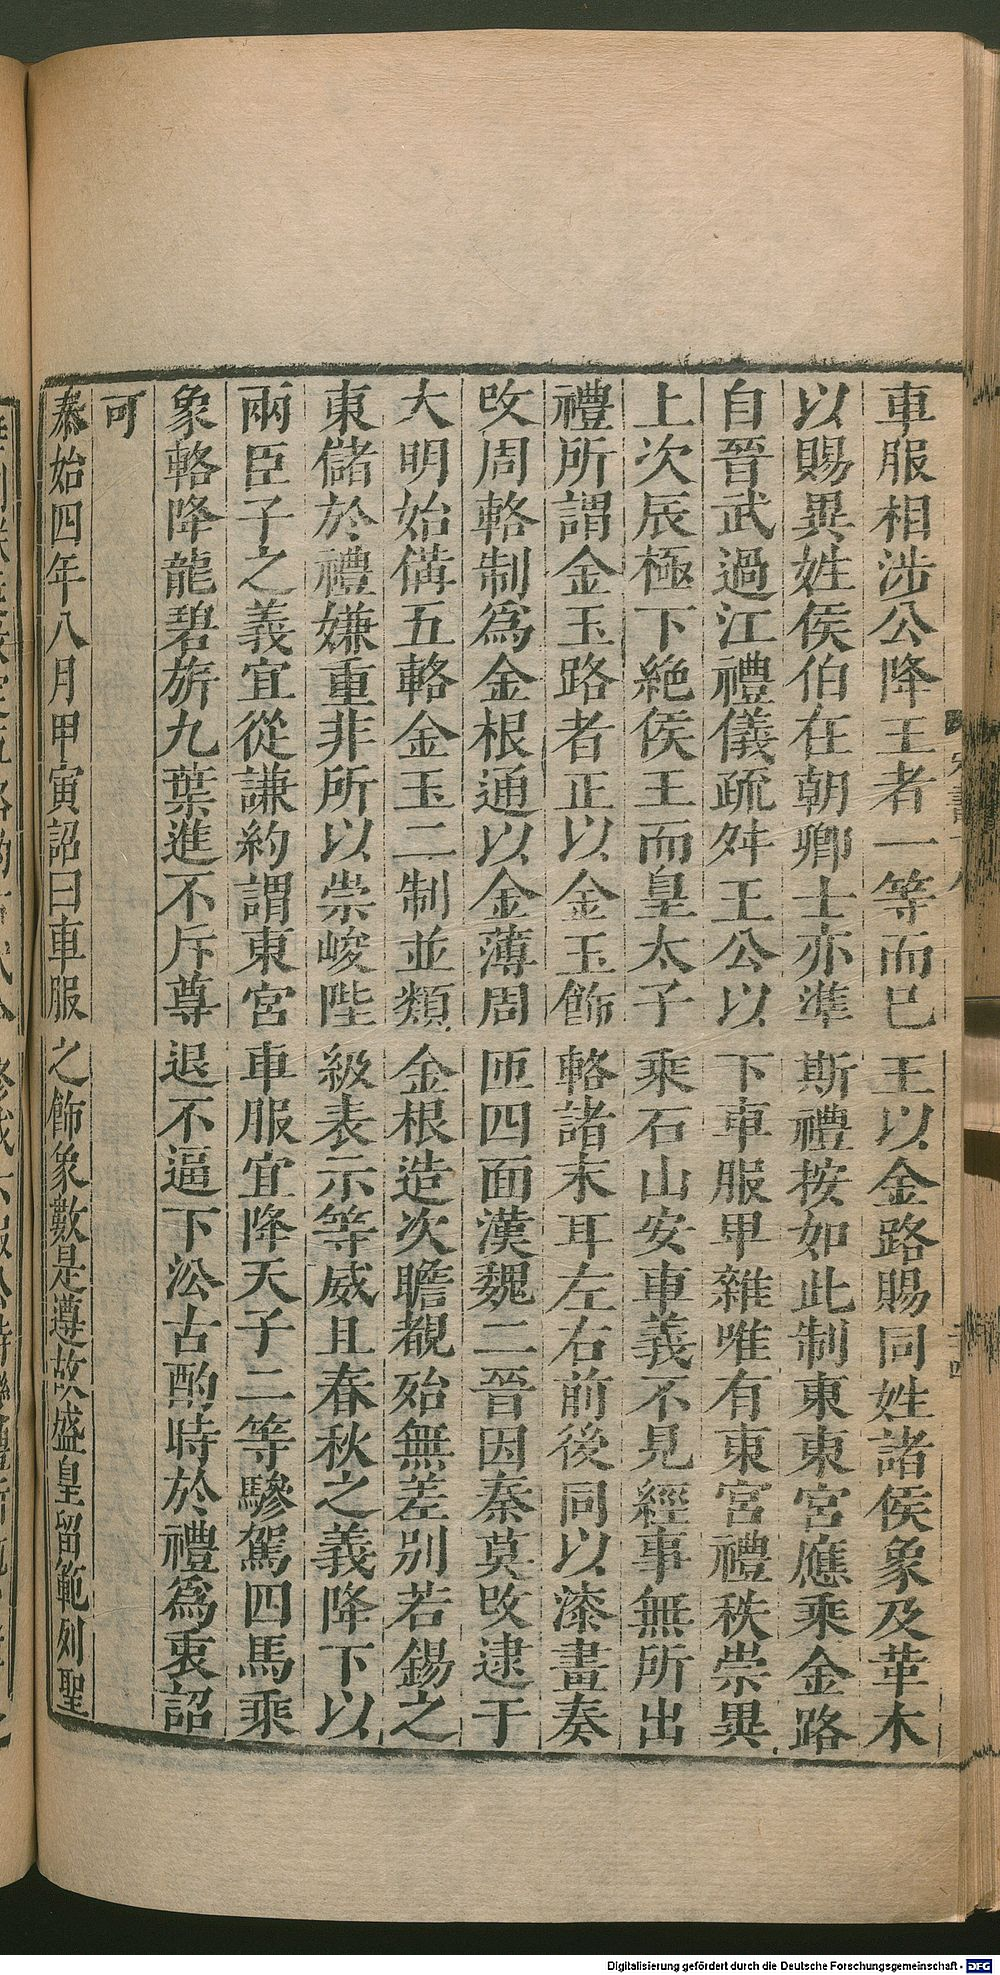 車服相涉公降王者一等而已王以金路賜同姓諸侯象及革木
以賜異姓侯伯在朝卿士亦準斯禮按如此制東東宮應乘金路
自晉武過江禮儀疏舛王公以下車服甲雜唯有東宮禮秩崇異
上次辰極下絶侯王而皇太子乘石山安車義不見經事無所出
禮所謂金玉路者正以金玉飾輅諸末耳左右前後同以漆畫奏
改周輅制爲金根通以金薄周匝四面漢魏二晉因秦莫改逮于
大明始備五輅金玉二制並類金根造次瞻覩殆無差别若錫之
東儲於禮嫌重非所以崇峻陛級表示等威且春秋之義降下以
兩臣子之義宜從謙約謂東宮車服宜降天子二等驂駕四馬乘
象輅降龍碧旂九葉進不斥尊退不逼下㳂古酌時於禮爲衷詔
可
泰始四年八月甲寅詔曰車服之飾象數是遵故盛皇留範列聖
Digitalisierung gefördert durch die Deutsche Forschungsgemeinschaft - DFG